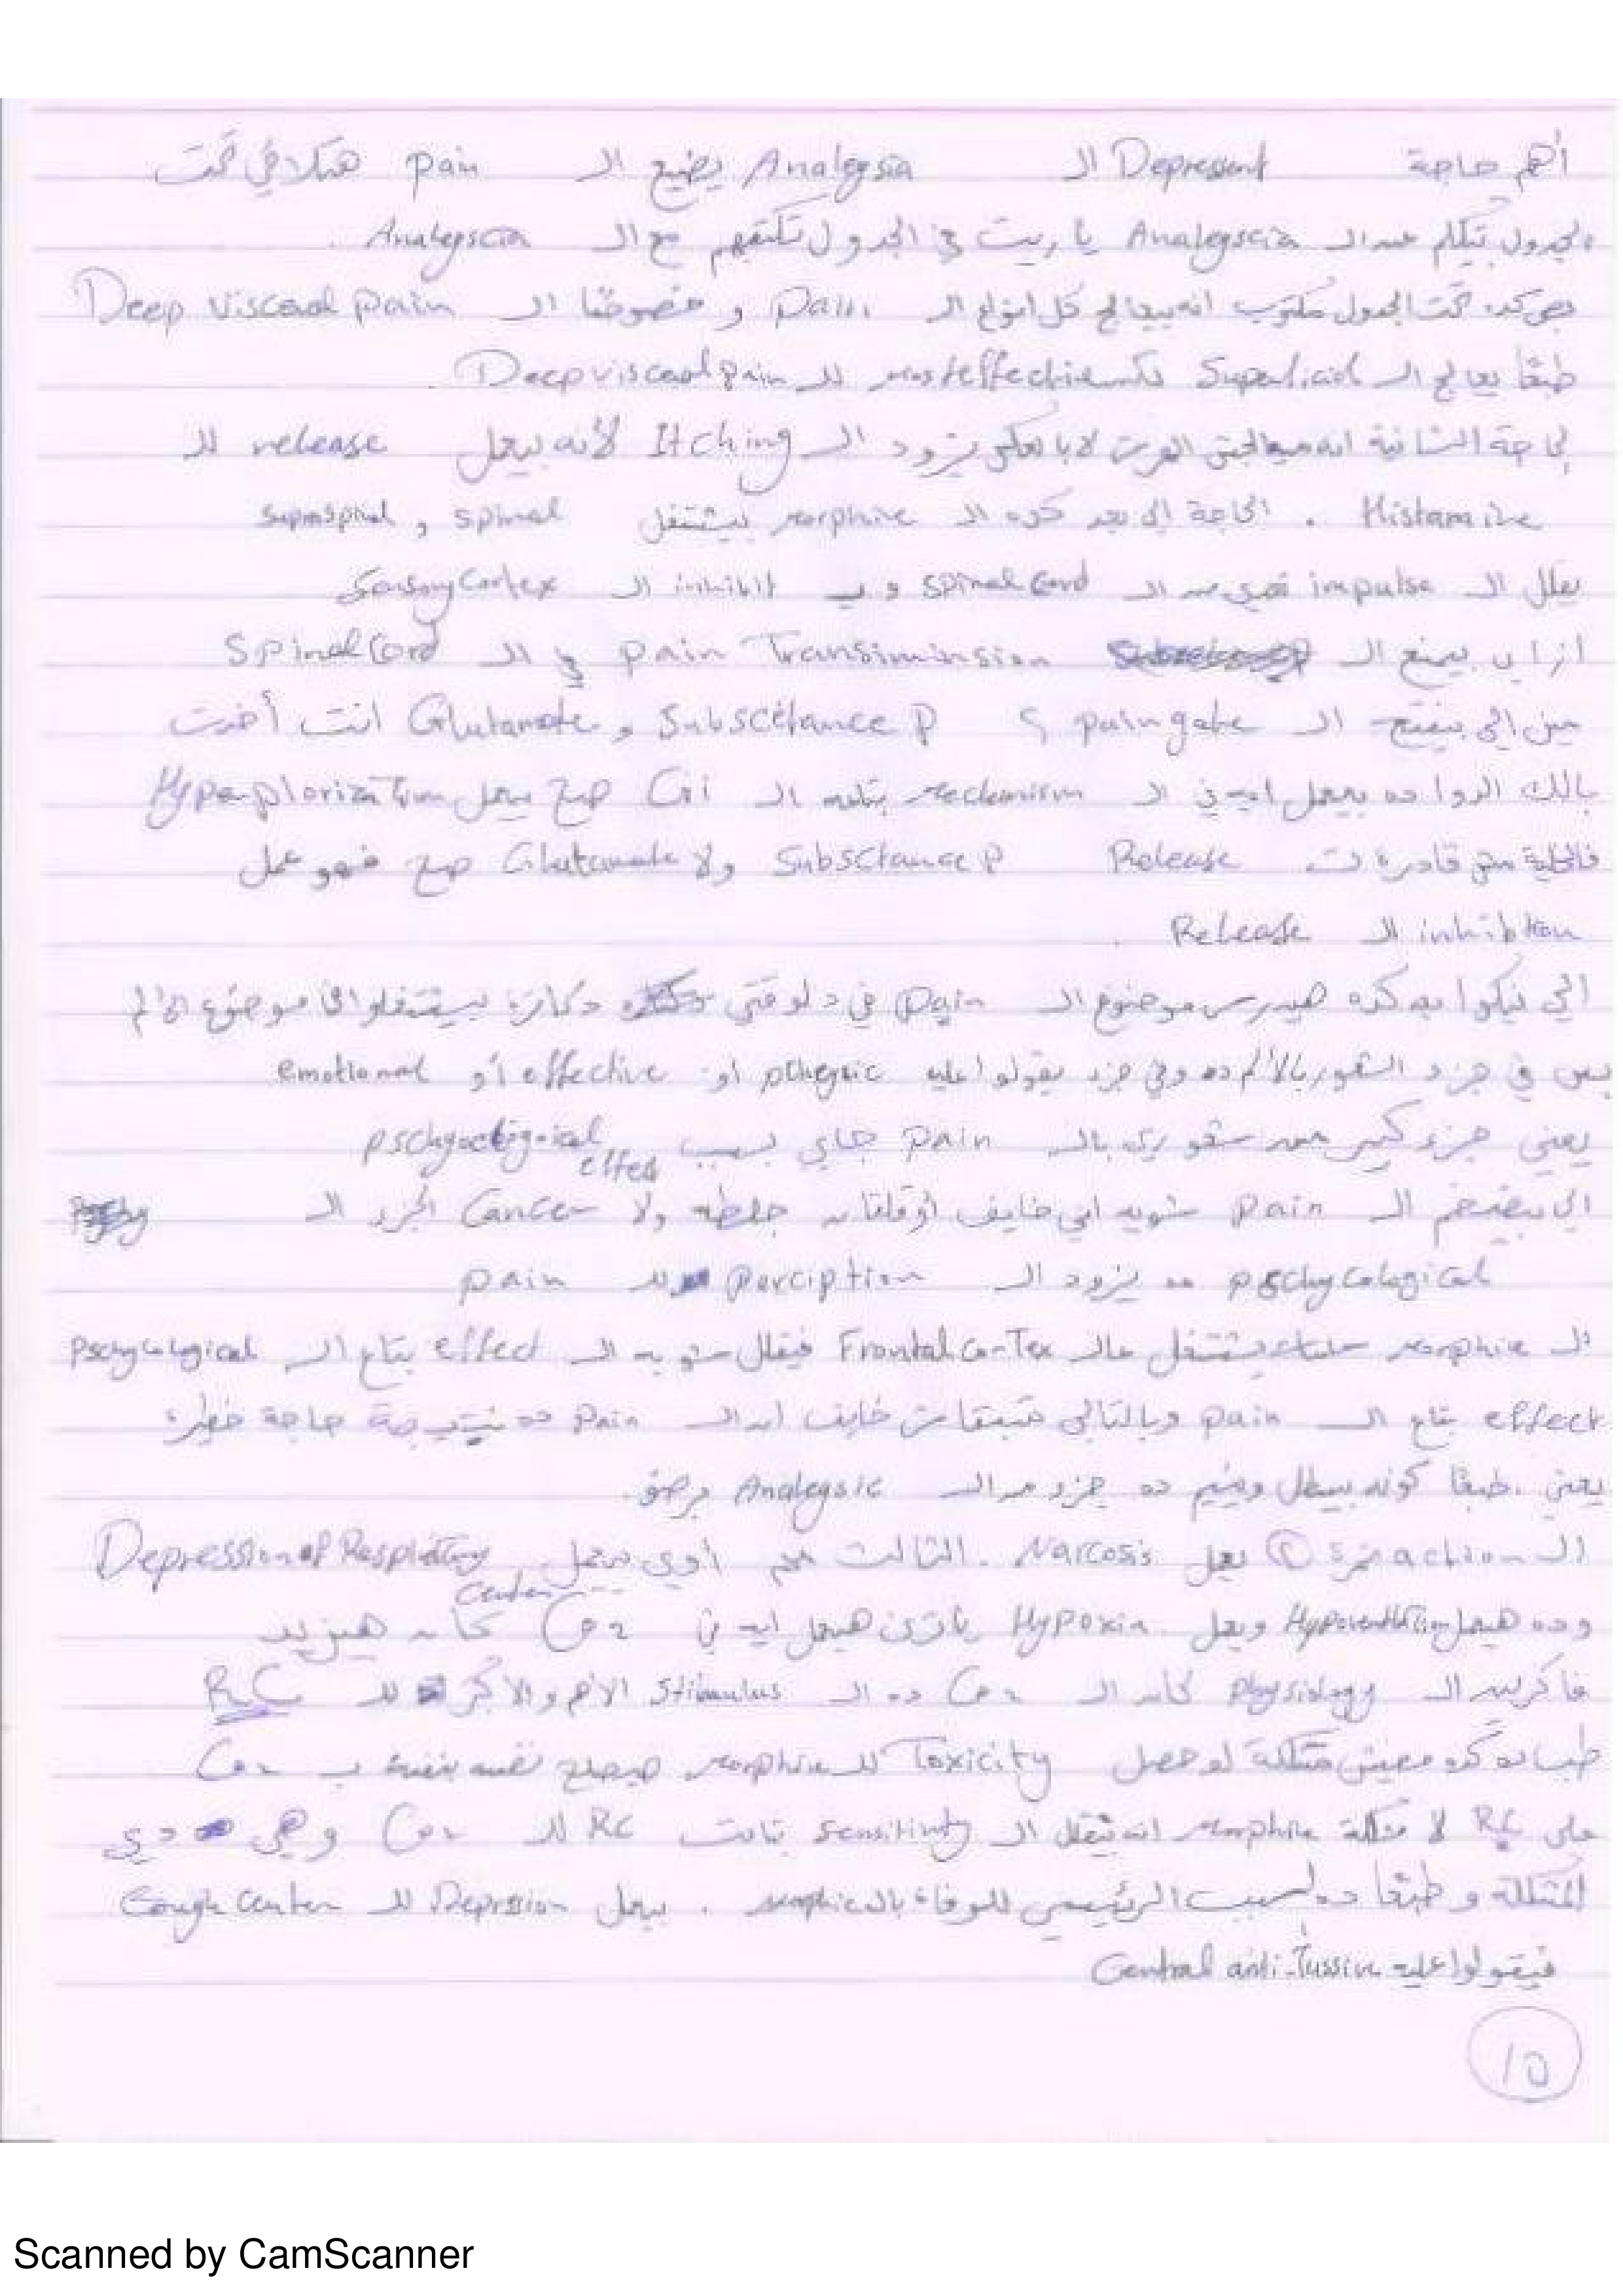 أهم حاجة الـ Depressent الـ Analegsia يضيع الـ pain هتلاقي تحت
الجدول بتكلم عن الـ Analegscia يا ريت في الجدول تكتبهم مع الـ Analegscia .
بص كده تحت الجدول مكتوب انه بيعالج كل انواع الـ pain و خصوصًا الـ Deep Visceal pain
طبعًا يعالج الـ Superficial لكن most effective للـ Deep visceal pain .
الحاجة التانية انه مبيعالجش الهرش لا بالعكس يزود الـ Itching لأنه بيعمل release للـ
Histamine . الحاجة الي بعد كده الـ morphine بيشتغل spinal و supraspinal
يقلل الـ impulse تعدي من الـ spinal cord و يـ inhibit الـ Sensory Cortex
ازاي بيمنع الـ pain Transiminsion في الـ Spinal Cord
مين الي بيفتح الـ pain gate ؟ Subsctance P و Glutamate انت أخدت
بالك الدوا ده بيعمل ايه في الـ mechanism بتاعه الـ Gi صح بيعمل Hyperplorization
فالخلية مش قادرة تـ Release Subsctance P ولا Glutamate صح فهو عمل
inhibition الـ Release .
الي نيكوا بعد كده هيدرس موضوع الـ pain في دلوقتي دكاترة بيشتغلوا في موضوع الألم
بس في جزء الشعور بالألم ده وفي جزء يقولوا عليه أو effective أو emotional
يعني جزء كبير من شعوري بالـ pain جاي بسبب pschycological effect
الي بيضخم الـ pain شوية اني خايف أو قلقان جلطه ولا Cancer الجزء الـ
pschycological ده يزود الـ perciption للـ pain
الـ morphine بيشتغل عالـ Frontal CorTex فيقلل شوية الـ effect بتاع الـ Pschycological
effect بتاع الـ pain وبالتالي متبقاش خايف ان الـ pain ده نتيجة حاجة خطيرة
يعني . طبعًا كونه بيسطل وينيم ده جزء من الـ Analegsic برضو .
الـ action نمرة ② يعمل Narcosis . التالت مهم أوي بيعمل Depression of Respiratory Center
وده هيعمل Hypoventilation ويعمل Hypoxia يا ترى هيعمل ايه في Co2 كان هيزيد
فاكرين الـ physiology كان الـ Co2 ده الـ stimulus الأهم والأكبر للـ RC
طب ده كده مفيش مشكلة لو حصل Toxicity للـ morphine هيصلح نفسه بنفسه بـ Co2
على RC لا مشكلة morphine انه بيقلل الـ sensitivity بتاعت RC للـ Co2 وهي دي
المشكلة و طبعًا ده السبب الرئيسي للوفاة بالـ morphine . بيعمل Depression للـ Cough Center
فيقولوا عليه Central anti-Tussive
١٥
Scanned by CamScanner